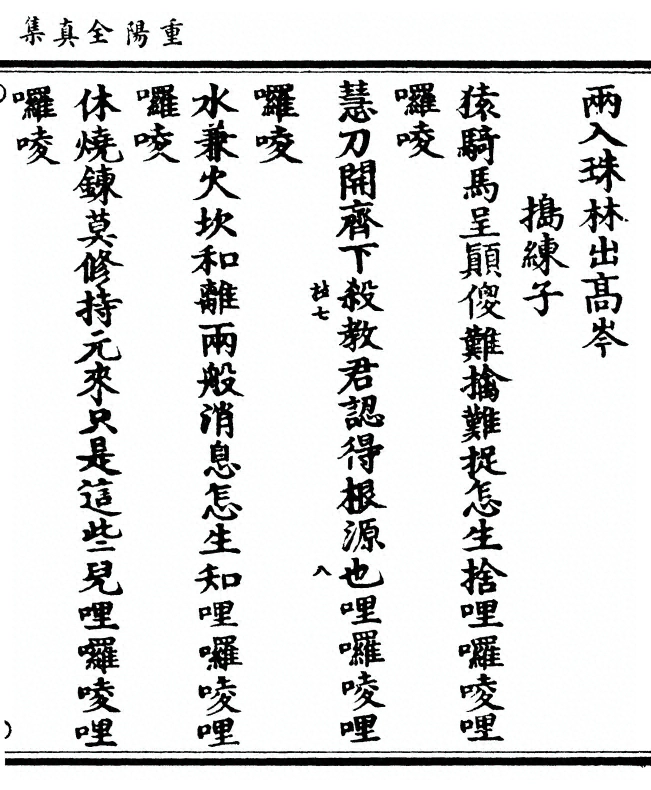 重陽全真集
兩入珠林出高岑
搗練子
猿騎馬呈顛傻難擒難捉怎生捨哩囉唛哩
囉唛
慧刀開齊下殺教君認得根源也哩囉唛哩
囉唛
水兼火坎和離兩般消息怎生知哩囉唛哩
囉唛
休燒鍊莫修持元來只是這些兒哩囉唛哩
囉唛
八